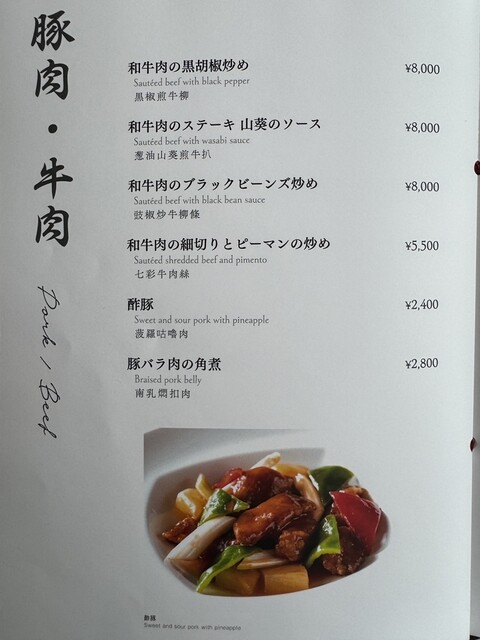 豚肉・牛肉
Pork / Beef
和牛肉の黒胡椒炒め ¥8,000
Sautéed beef with black pepper
黒椒煎牛柳
和牛肉のステーキ 山葵のソース ¥8,000
Sautéed beef with wasabi sauce
葱油山葵煎牛扒
和牛肉のブラックビーンズ炒め ¥8,000
Sautéed beef with black bean sauce
豉椒炒牛柳條
和牛肉の細切りとピーマンの炒め ¥5,500
Sautéed shredded beef and pimento
七彩牛肉絲
酢豚 ¥2,400
Sweet and sour pork with pineapple
菠羅咕嚕肉
豚バラ肉の角煮 ¥2,800
Braised pork belly
南乳燜扣肉
酢豚
Sweet and sour pork with pineapple